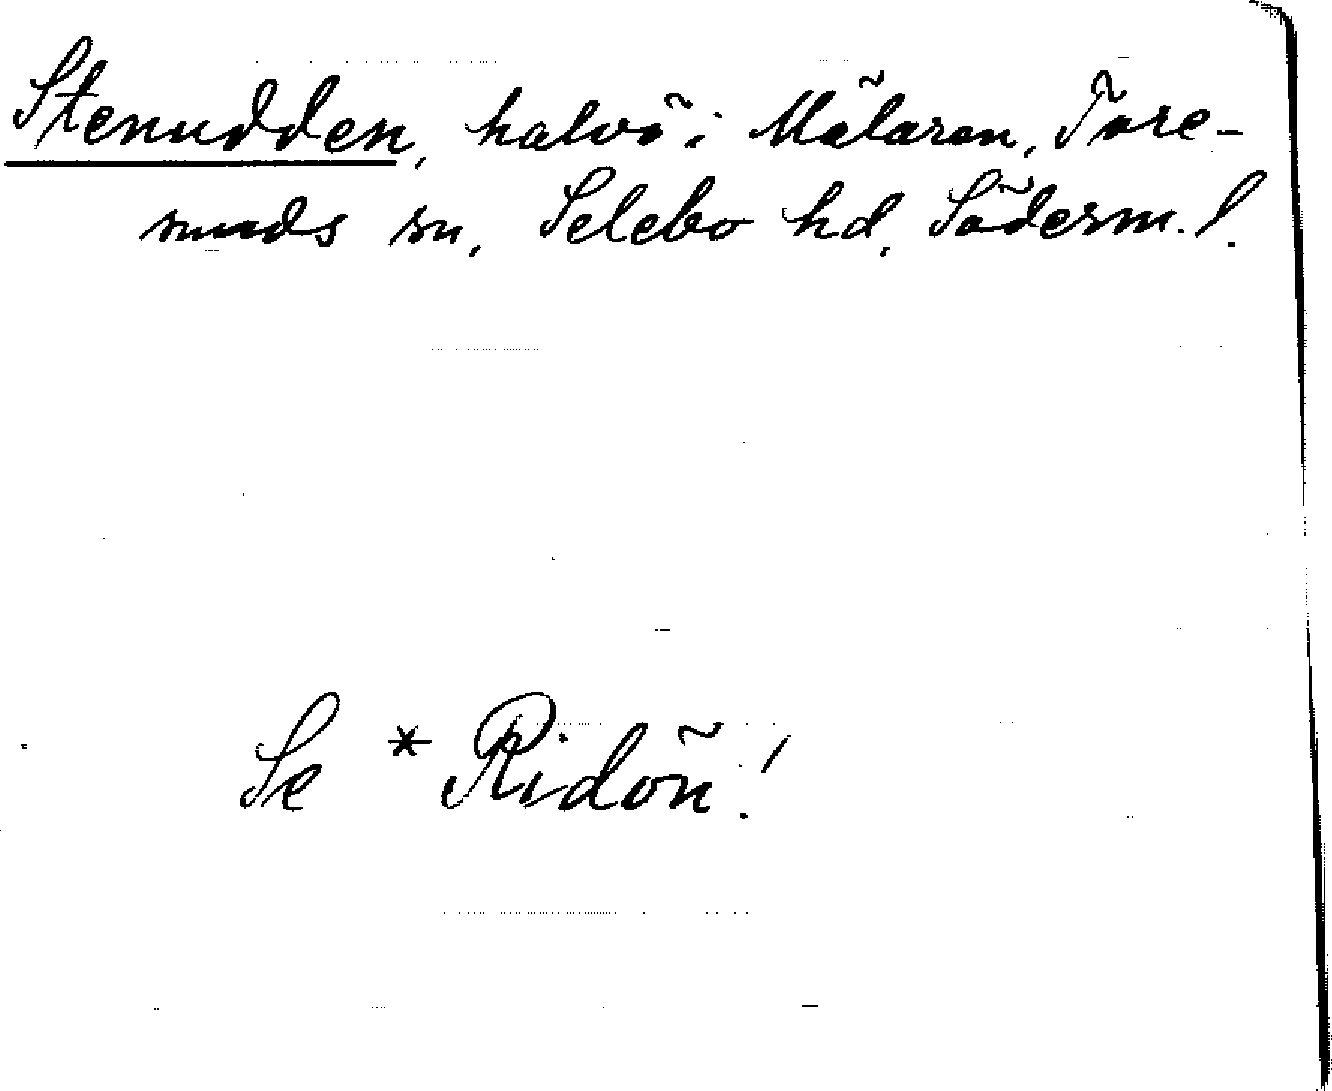 Stenudden, halvö i Mälaren, Tore-
sunds sn, Selebo hd, Söderm. l.
Se *Ridön!